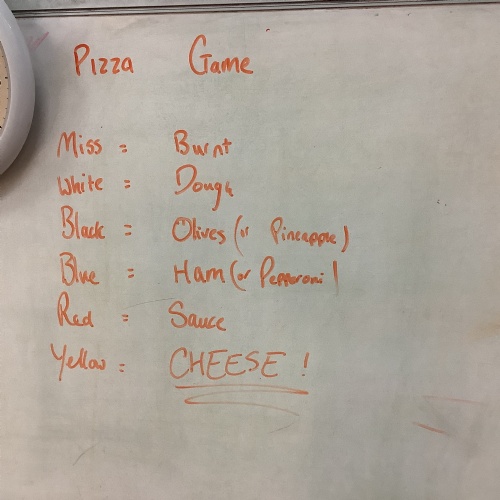 Pizza Game
Miss = Burnt
White = Dough
Black = Olives (or Pineapple)
Blue = Ham (or Pepperoni)
Red = Sauce
Yellow = CHEESE !